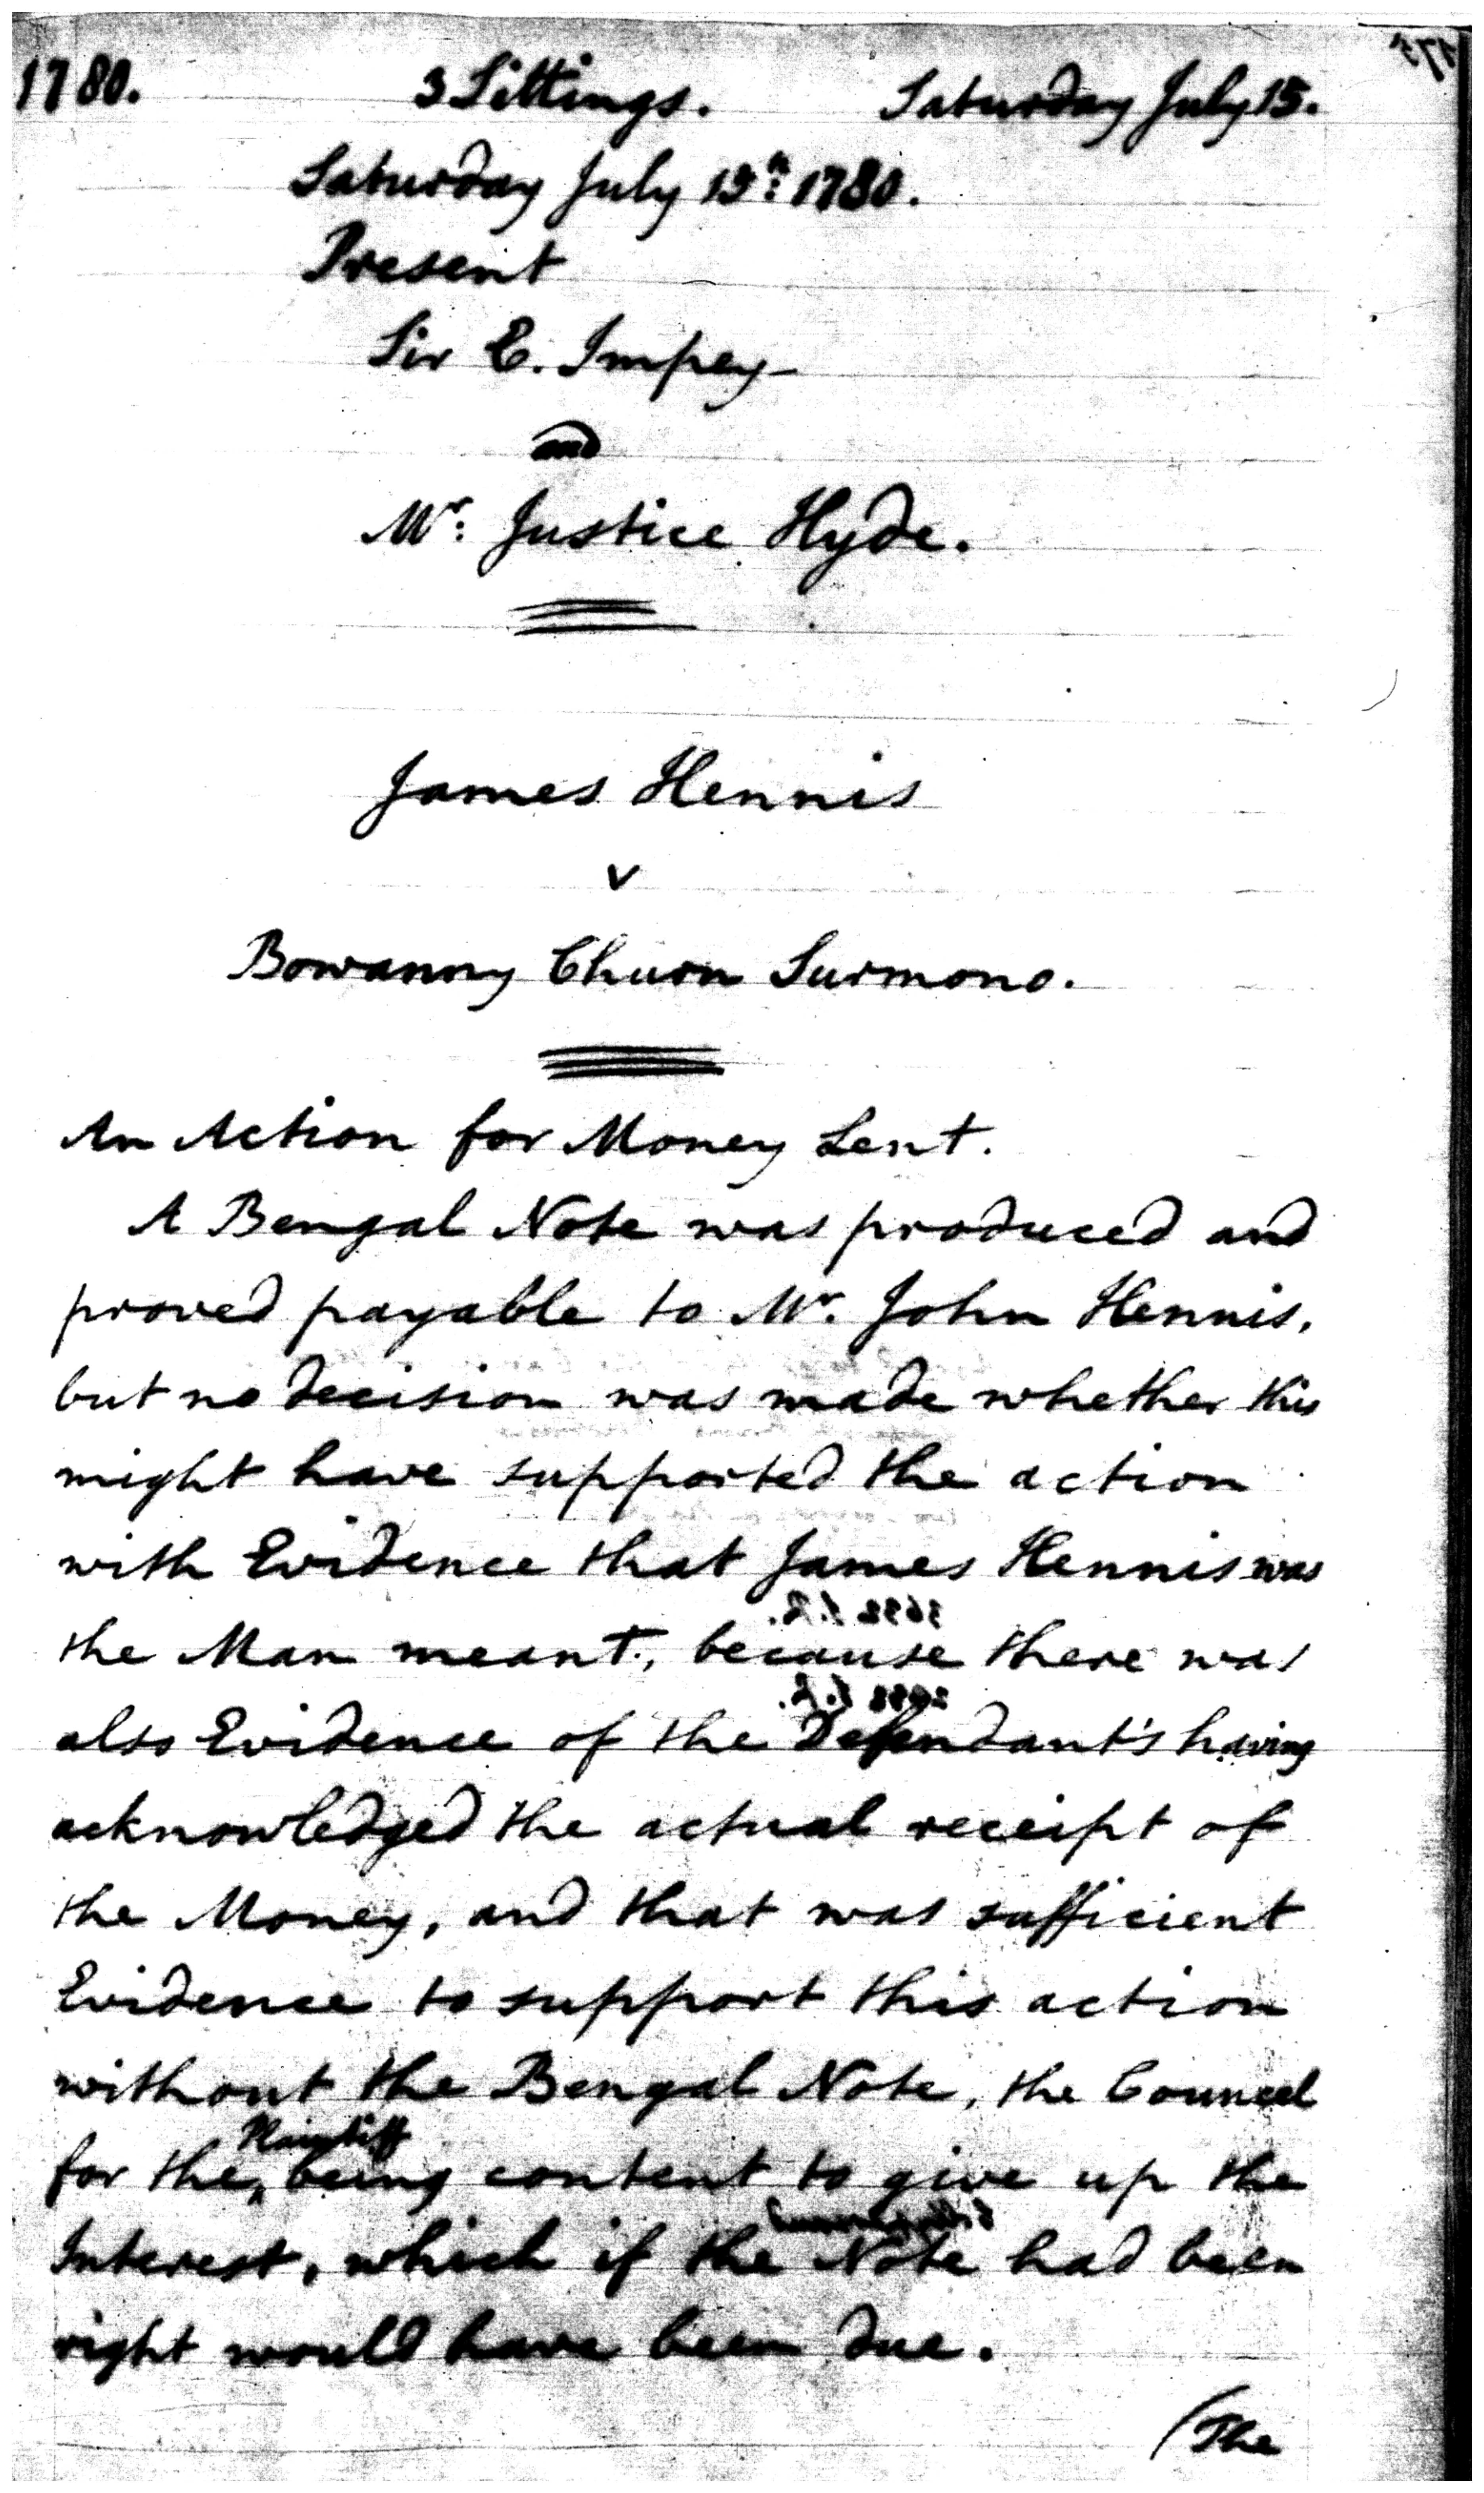 1780. 3 Sittings. Saturday July 15.
Saturday July 15th: 1780.
Present
Sir E. Impey
and
Mr: Justice Hyde.
James Hennis
v
Bowanny Churn Surmono.
An Action for Money Lent.
A Bengal Note was produced and
proved payable to Mr. John Hennis,
but no decision was made whether this
might have supported the action
with Evidence that James Hennis was
the Man meant, because there was
also Evidence of the Defendant's having
acknowledged the actual receipt of
the Money, and that was sufficient
Evidence to support this action
without the Bengal Note, the Councel
Plaintiff
for the, being content to give up the
Interest, which if the Note had been
right would have been due.
(The